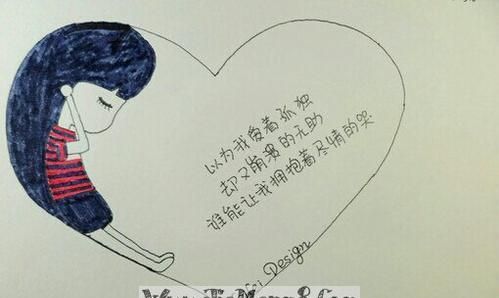 以为我爱着孤独
却又崩溃的无助
谁能让我拥抱着尽情的哭
Design